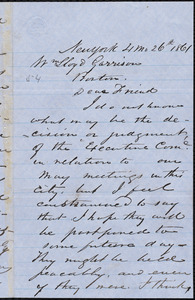 New York 4 mo 26th 1861
Wm Lloyd Garrison
Boston
Dear Friend
I do not know
what may be the de-
cision or judgment
of the Executive Come
in relation to our
May meetings in this
City, but I feel
constrained to say
that I hope they will
be postponed to
some future day—
They might be held
peaceably, and even
if they were I think,